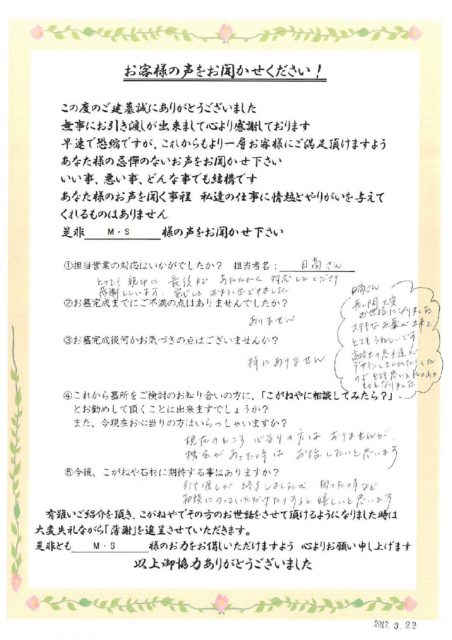 お客様の声をお聞かせください！
この度のご建墓誠にありがとうございました
無事にお引き渡しが出来まして心より感謝しております
早速で恐縮ですが、これからもより一層お客様にご満足頂けますよう
あなた様の忌憚のないお声をお聞かせ下さい
いい事、悪い事、どんな事でも結構です
あなた様のお声を聞く事程 私達の仕事に情熱とやりがいを与えて
くれるものはありません
是非 M・S 様の声をお聞かせ下さい
①担当営業の対応はいかがでしたか？ 担当者名： 日高さん
とても 親切に 最後まで あたたかく 対応してくださり
感謝しています
②お墓完成までにご不満の点はありませんでしたか？
ありません
③お墓完成後何かお気づきの点はございませんか？
特にありません
日高さん
長い間 大変
お世話になりました
ステキなお墓が出来て
とてもうれしいです
④これから墓所をご検討のお知り合いの方に、「こがねやに相談してみたら？」
とお勧めして頂くことは出来ますでしょうか？
また、今現在お心当りの方はいらっしゃいますか？
現在のところ 心当りの方は ありませんが、
機会があった時は お話したいと思います
⑤今後、こがねや石材に期待する事はありますか？
引き渡しが 終りましたが 困った時など
相談にのっていただけたりすると 嬉しいと思います
有難いご紹介を頂き、こがねやでその方のお世話をさせて頂けるようになりました時は
大変失礼ながら「薄謝」を進呈させていただきます。
是非とも M・S 様のお力をお借しいただけますよう 心よりお願い申し上げます
以上御協力ありがとうございました
2017. 3. 22